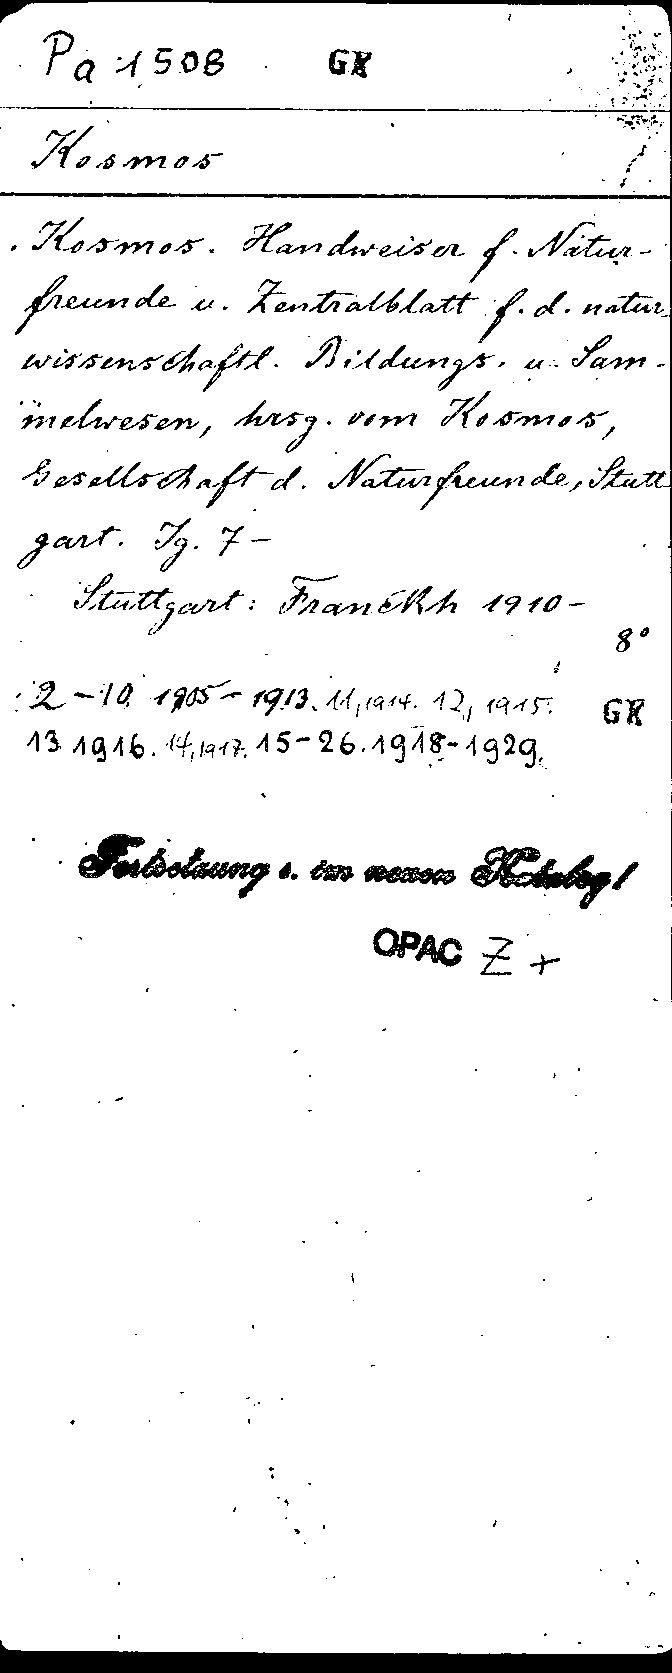 Pa 1508 GK
Kosmos
. Kosmos. Handweiser f. Natur-
freunde u. Zentralblatt f. d. natur-
wissenschaftl. Bildungs- u. Sam-
melwesen, hrsg. vom Kosmos,
Gesellschaft d. Naturfreunde, Stutt
gart. Jg. 7 –
Stuttgart: Franckh 1910 –
8°
2 – 10. 1905 – 1913. 11, 1914. 12, 1915. GK
13 1916. 14, 1917. 15 – 26. 1918 – 1929.
Fortsetzung s. im neuen Katalog!
OPAC Z +